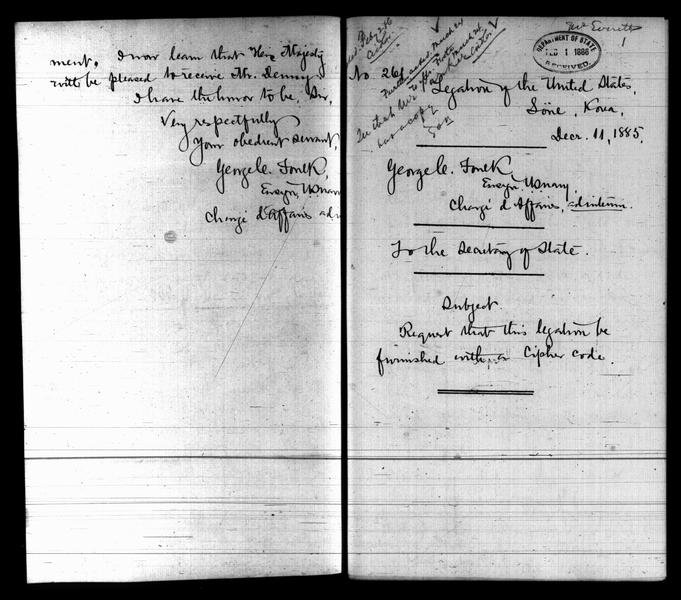 ment. I now learn that Her Majesty
will be pleased to receive Mr. Denny.
I have the honor to be, Sir,
Very respectfully
Your obedient servant,
George C. Foulk,
Ensign, U.S. Navy
Chargé d'Affaires ad
Mr Everett
1
DEPARTMENT OF STATE
FEB 1 1886
RECEIVED.
No 261
Legation of the United States,
Söul, Korea,
Decr. 11, 1885.
George C. Foulk,
Ensign, U.S. Navy,
Chargé d'Affaires, ad interim.
To the Secretary of State.
Subject.
Request that this legation be
furnished with a Cipher code.